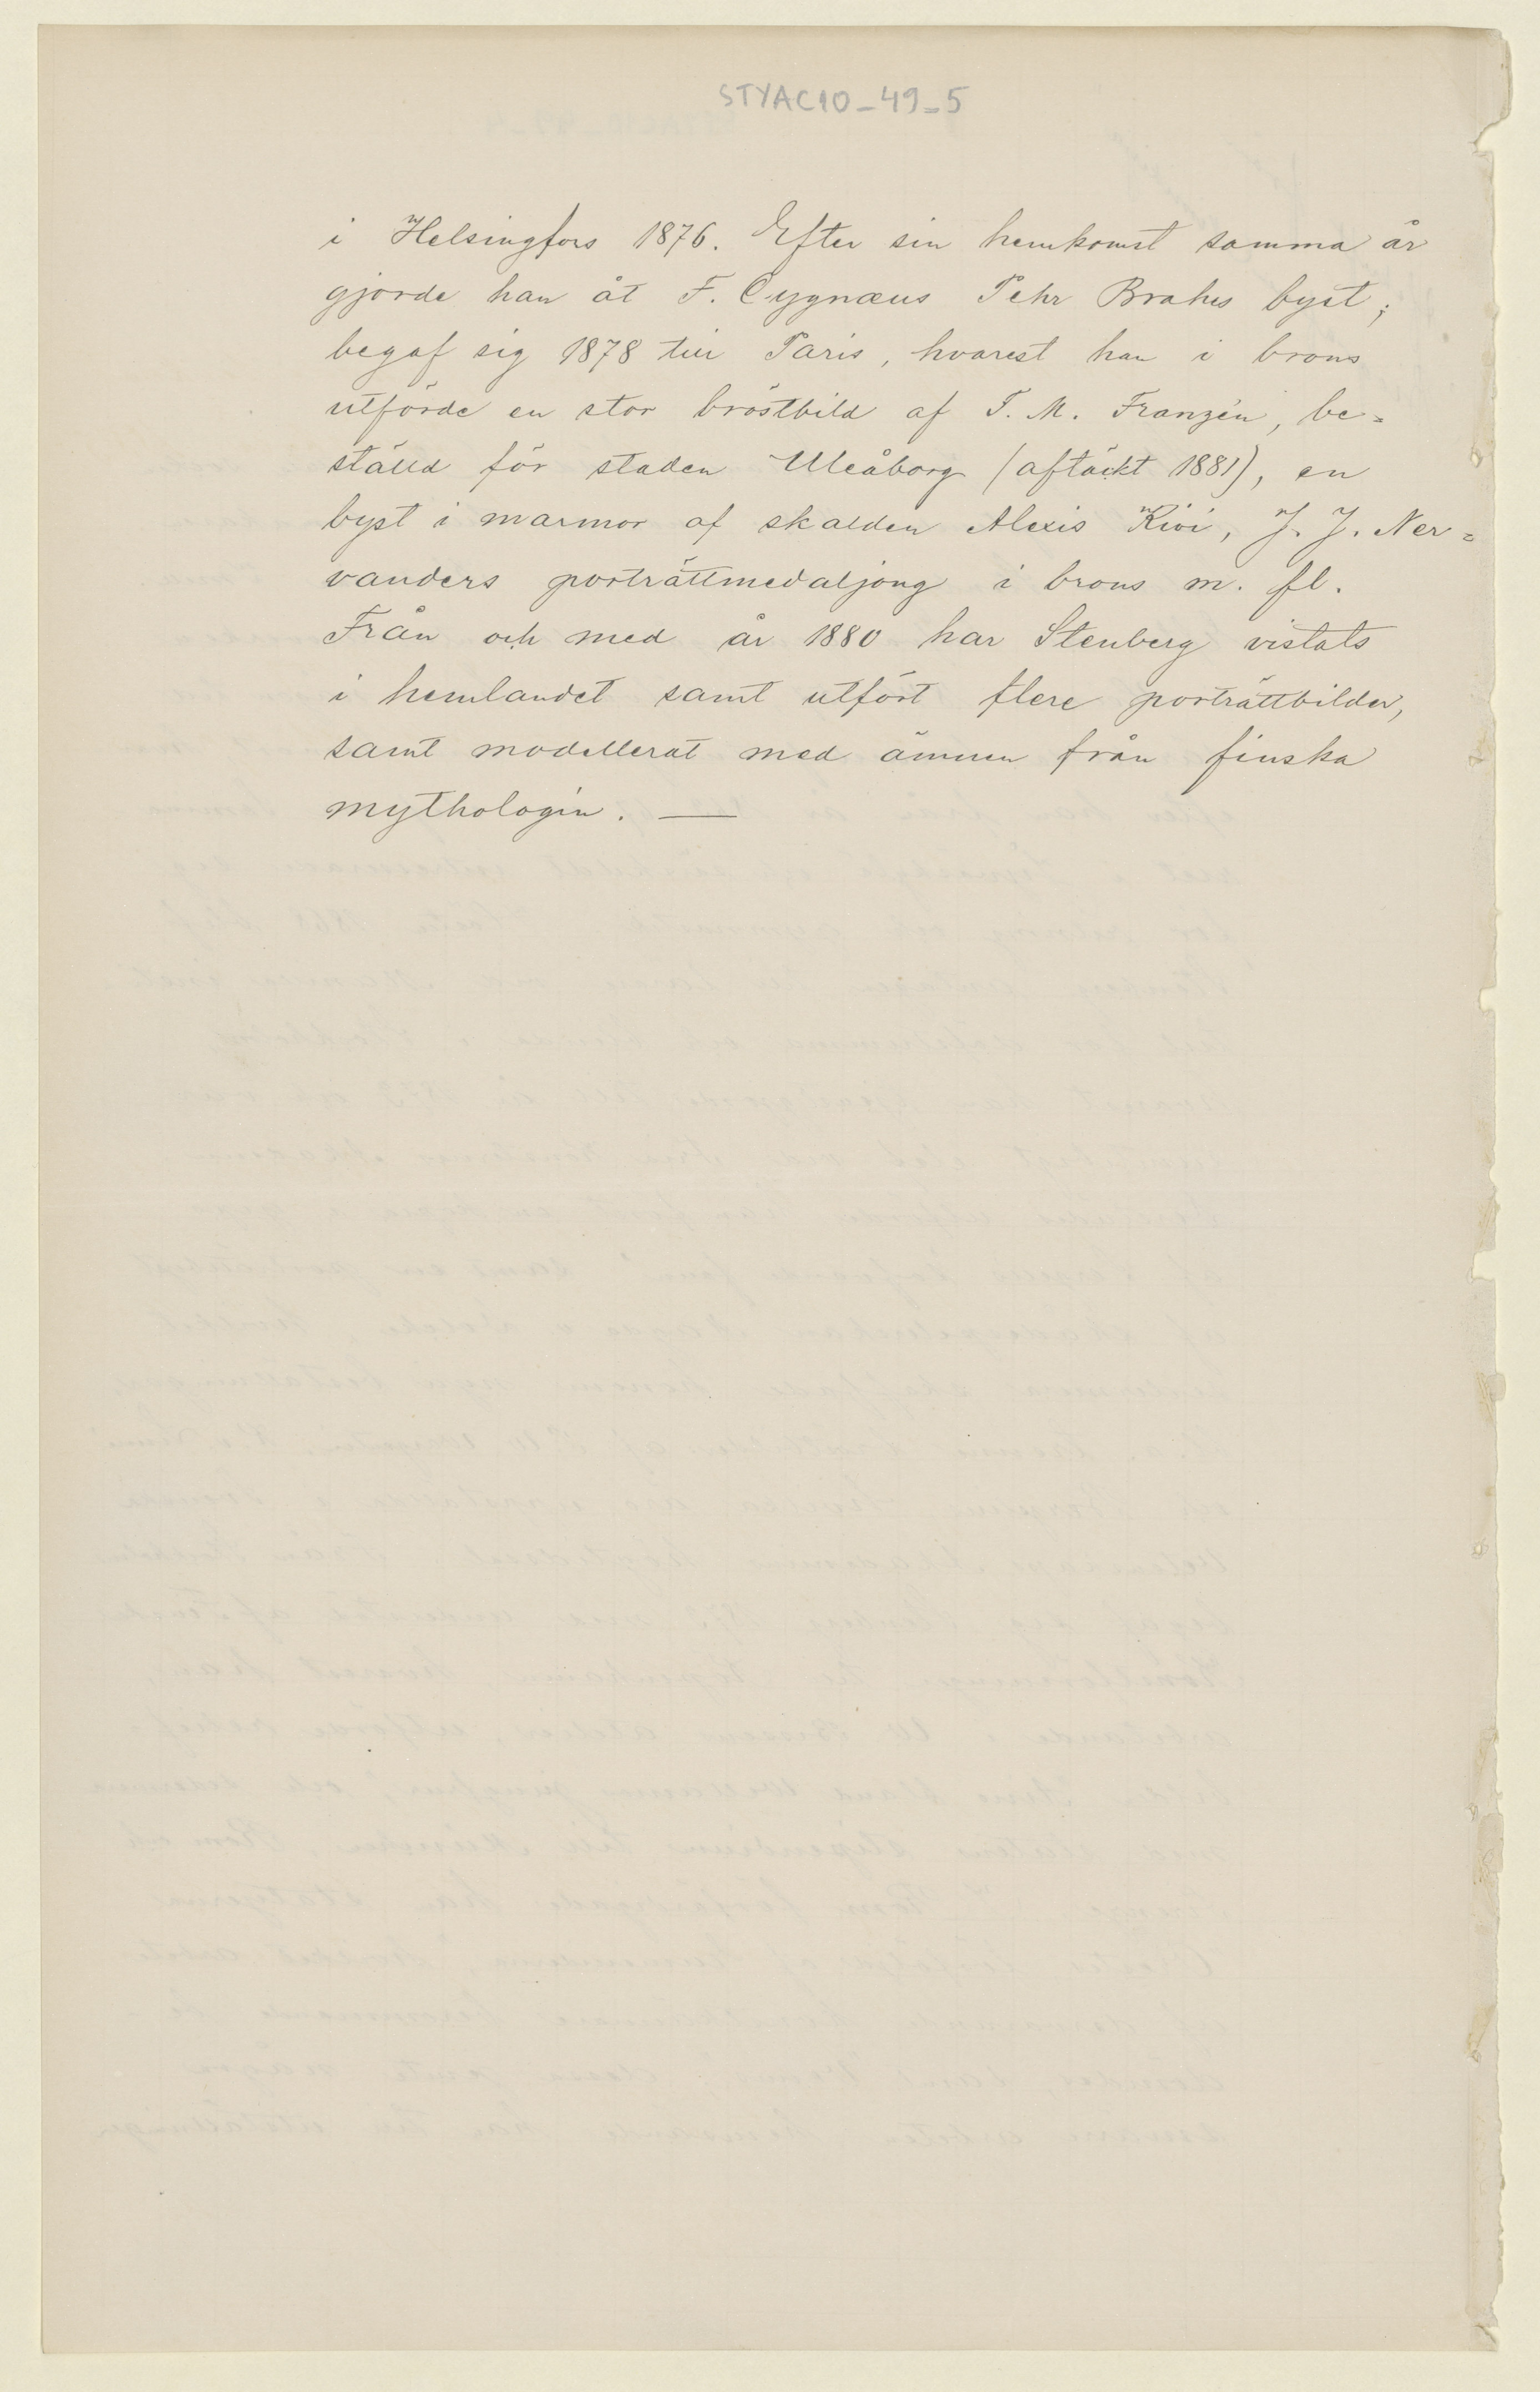 STYAC10_49_5
i Helsingfors 1876. Efter sin hemkomst samma år
gjorde han åt F. Cygnæus Pehr Brahes byst;
begaf sig 1878 till Paris, hvarest han i brons
utförde en stor bröstbild af F. M. Franzén, be=
ställd för staden Uleåborg (aftäckt 1881), en
byst i marmor af skalden Alexis Kivi, J. J. Ner=
vanders porträttmedaljong i brons m. fl.
Från och med år 1880 har Stenberg vistats
i hemlandet samt utfört flere porträttbilder,
samt modellerat med ämnen från finska
mythologin. —